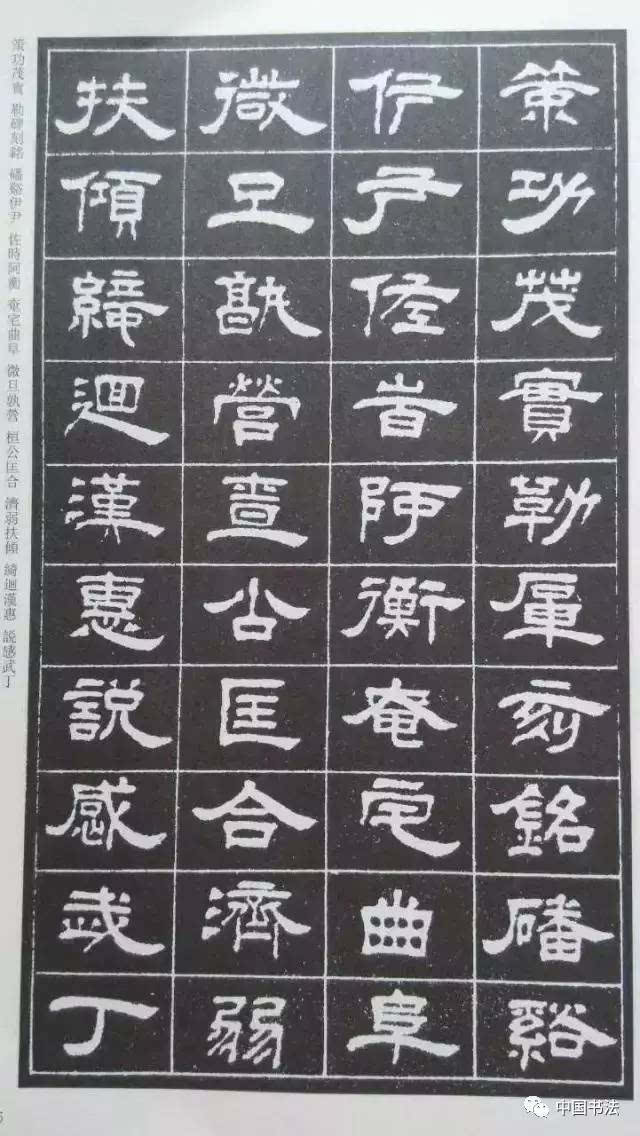 策功茂實勒碑刻銘磻谿
伊尹佐時阿衡奄宅曲阜
微旦孰營桓公匡合濟弱
扶傾綺迴漢惠説感武丁
策功茂實 勒碑刻銘 磻谿伊尹 佐時阿衡 奄宅曲阜 微旦孰營 桓公匡合 濟弱扶傾 綺迴漢惠 説感武丁
中国书法